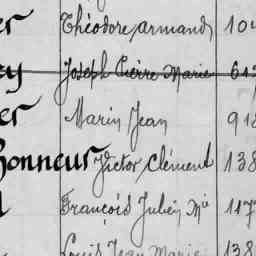 er Théodore Armand 104
ey Joseph Pierre Marie 61
er Marin Jean 91
Honneur Victor Clément 138
François Julien Mie 117
Louis Jean Marie 138